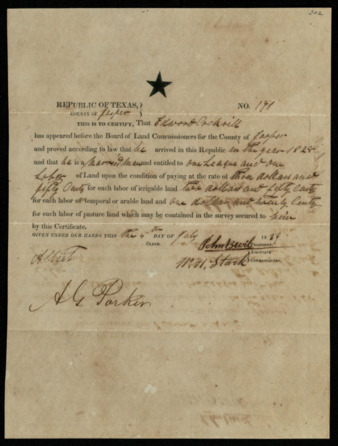 202
REPUBLIC OF TEXAS,
COUNTY OF Jasper
NO. 191
THIS IS TO CERTIFY, That Edward Cockrill
has appeared before the Board of Land Commissioners for the County of Jasper
and proved according to law that he arrived in this Republic in the year 1828
and that he is a married man and entitled to one League and one
Labor of Land upon the condition of paying at the rate of three dollars and
fifty Cents for each labor of irrigable land two dollars and fifty Cents
for each labor of temporal or arable land and one dollar and twenty Cents
for each labor of pasture land which may be contained in the survey secured to him
by this Certificate.
GIVEN UNDER OUR HANDS THIS the 4th DAY OF July 18
John Bevil
Wm Stack
Attest
A G Parker